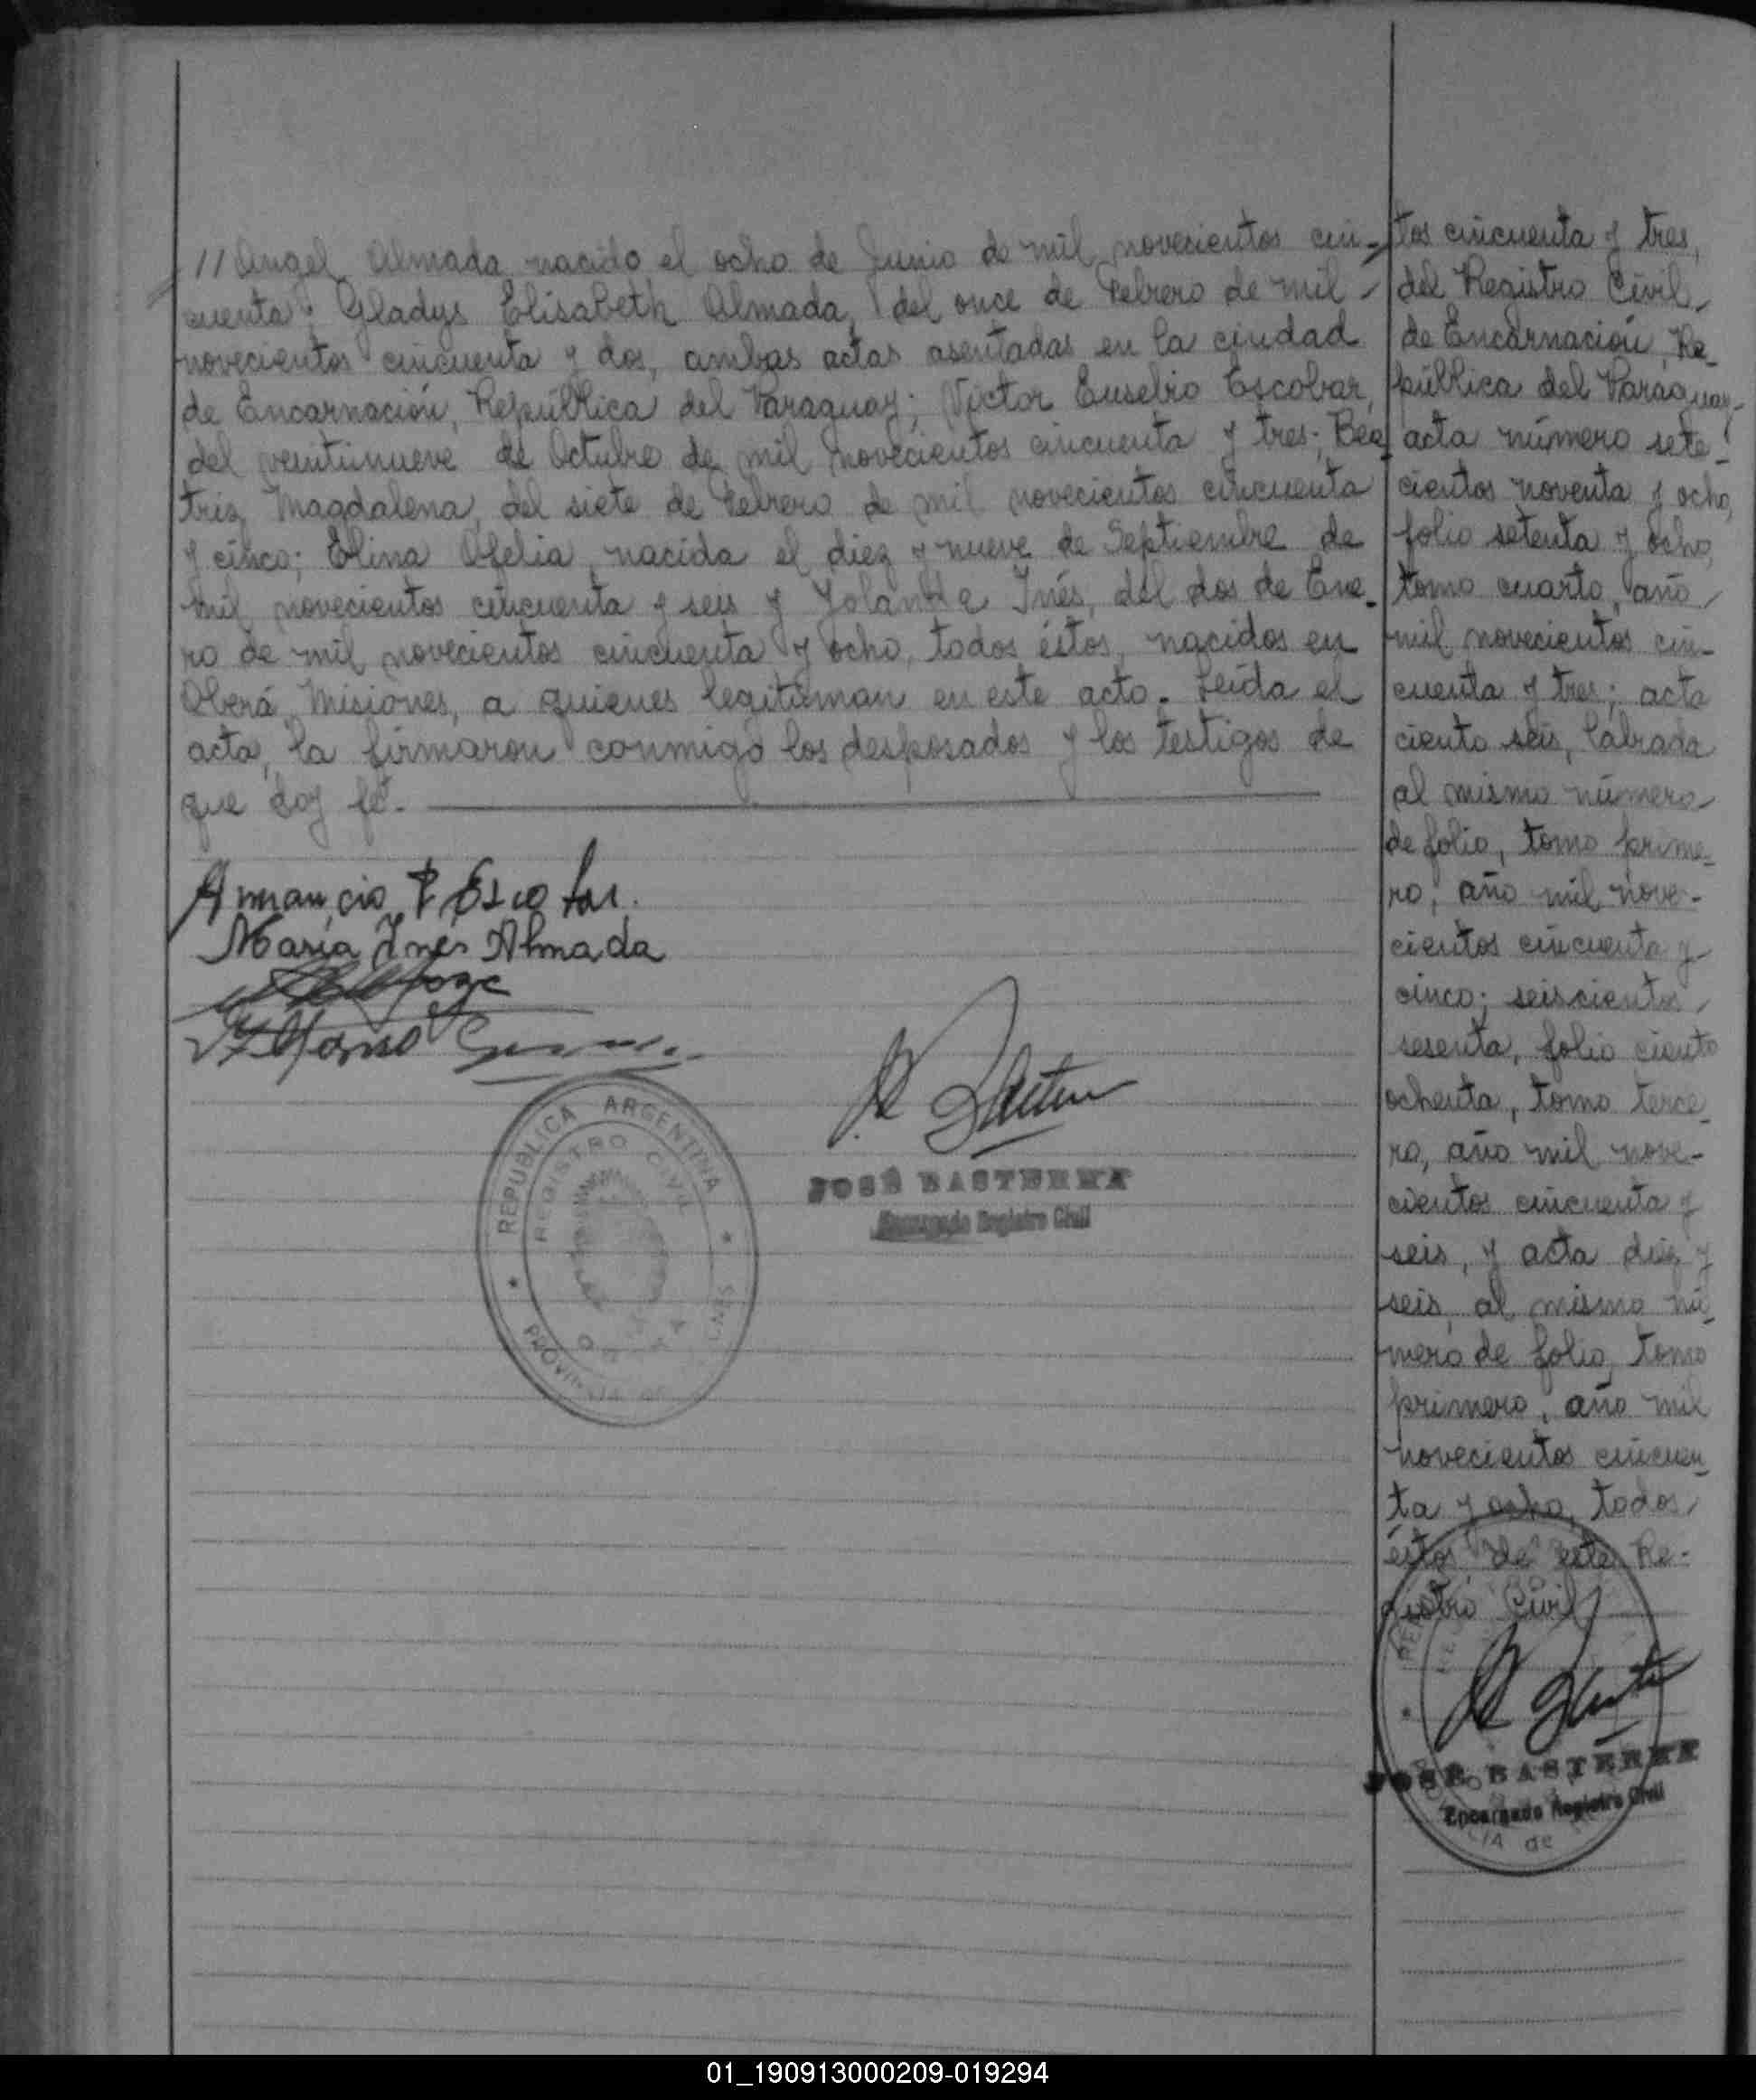 // Angel Almada nacido el ocho de Junio de mil novecientos cin-
cuenta; Gladys Elisabeth Almada, del once de Febrero de mil
novecientos cincuenta y dos, ambas actas asentadas en la ciudad
de Encarnación, República del Paraguay; Víctor Eusebio Escobar,
del veintinueve de Octubre de mil novecientos cincuenta y tres; Bea-
triz Magdalena, del siete de Febrero de mil novecientos cincuenta
y cinco; Elina Ofelia, nacida el diez y nueve de Septiembre de
mil novecientos cincuenta y seis y Yolanda Inés, del dos de Ene-
ro de mil novecientos cincuenta y ocho, todos éstos, nacidos en
Oberá, Misiones, a quienes legitiman en este acto. Leída el
acta, la firmaron conmigo los desposados y los testigos de
que doy fé.
Amancio Escobar
María Inés Almada
REPUBLICA ARGENTINA
REGISTRO CIVIL
PROVINCIA DE
JOSÉ BASTERRA
Encargado Registro Civil
tos cincuenta y tres,
del Registro Civil
de Encarnación, Re-
pública del Paraguay-
acta número sete-
cientos noventa y ocho,
folio setenta y ocho,
tomo cuarto, año
mil novecientos cin-
cuenta y tres; acta
ciento seis, labrada
al mismo número
de folio, tomo prime-
ro, año mil nove-
cientos cincuenta y
cinco; seiscientos
sesenta, folio ciento
ochenta, tomo terce-
ro, año mil nove-
cientos cincuenta y
seis, y acta diez y
seis, al mismo nú-
mero de folio, tomo
primero, año mil
novecientos cincuen-
ta y ocho, todos
éstos de este Re-
gistro Civil
JOSÉ BASTERRA
Encargado Registro Civil
01_190913000209-019294